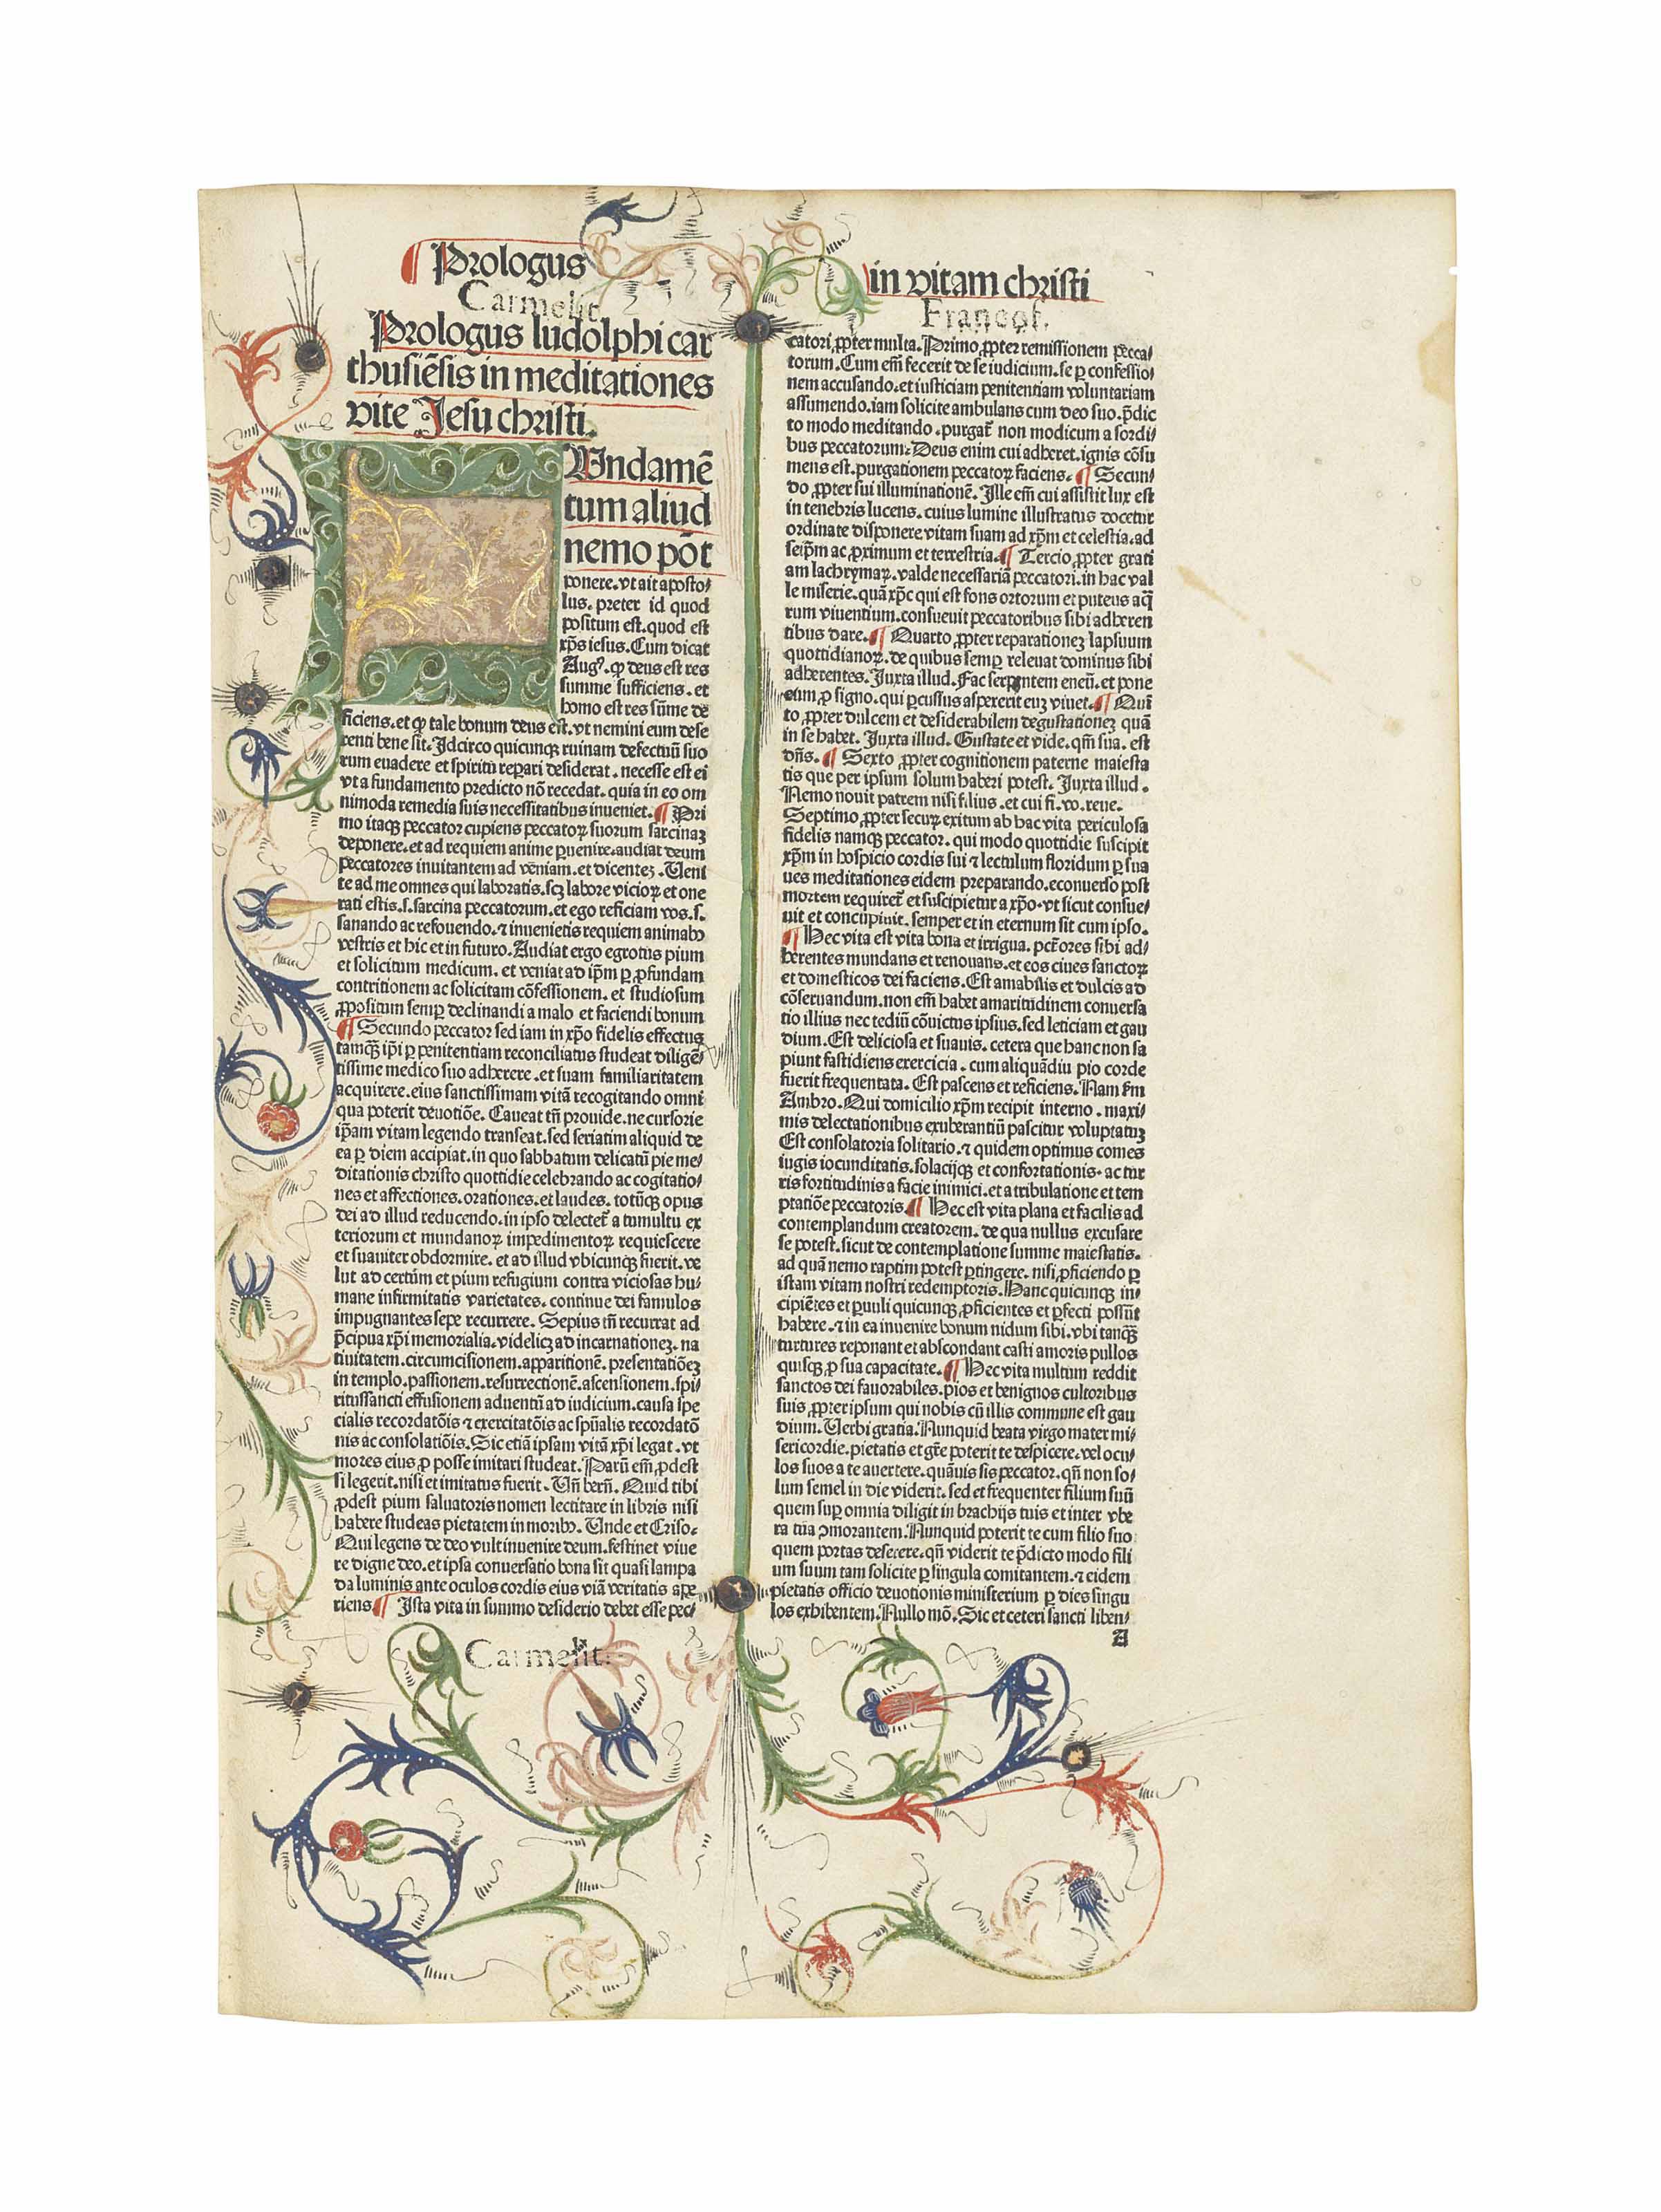 Prologus
in vitam christi
Carmelit.
Francof.
Prologus ludolphi car
thusiēsis in meditationes
vite Jesu christi.
FUndamē
tum aliud
nemo pōt
ponere. vt ait aposto/
lus. preter id quod
positum est. quod est
xp̄s iesus. Cum dicat
Augꝰ. ꝙ deus est res
summe sufficiens. et
homo est res sūme de
ficiens. et ꝙ tale bonum deus est. vt nemini eum dese
renti bene sit. Idcirco quicunqꝫ ruinam defectuū suo
rum euadere et spiritu reꝑari desiderat. necesse est ei
vt a fundamento predicto nō recedat. quia in eo om
nimoda remedia suis necessitatibus inueniet. ¶ Pri
mo itaqꝫ peccator cupiens peccatoꝝ suorum sarcinaꝫ
deponere. et ad requiem anime ꝑuenire. audiat deum
peccatores inuitantem ad veniam. et dicenteꝫ. Ueni
te ad me omnes qui laboratis. scꝫ labore vicioꝝ et one
rati estis. s. sarcina peccatorum. et ego reficiam vos. s.
sanando ac refouendo. ⁊ inuenietis requiem animabꝰ
vestris et hic et in futuro. Audiat ergo egrotus pium
et solicitum medicum. et veniat ad ip̄m ꝑ ꝓfundam
contritionem ac solicitam cōfessionem. et studiosum
ꝓpositum semꝑ declinandi a malo et faciendi bonum
¶ Secundo peccator sed iam in xp̄o fidelis effectus
tamqꝫ ip̄i ꝑ penitentiam reconciliatus studeat diligē/
tissime medico suo adherere. et suam familiaritatem
acquirere. eius sanctissimam vitā recogitando omni
qua poterit deuotiōe. Caueat tn̄ prouide. ne cursorie
ip̄am vitam legendo transeat. sed seriatim aliquid de
ea ꝑ diem accipiat. in quo sabbatum delicatū pie me/
ditationis christo quottidie celebrando ac cogitatio/
nes et affectiones. orationes. et laudes. totūqꝫ opus
dei ad illud reducendo. in ipso delectet̄ a tumultu ex
teriorum et mundanoꝝ impedimentoꝝ requiescere
et suauiter obdormire. et ad illud vbicunqꝫ fuerit. ve
lut ad certum et pium refugium contra viciosas hu/
mane infirmitatis varietates. continue dei famulos
impugnantes sepe recurrere. Sepius tn̄ recurrat ad
p̄cipua xp̄i memorialia. videlicꝫ ad incarnationeꝫ. na
tiuitatem. circumcisionem. apparitionē. presentatiōeꝫ
in templo. passionem. resurrectionē. ascensionem. spi/
ritussancti effusionem aduentū ad iudicium. causa spe
cialis recordatōis ⁊ exercitatōis ac spūalis recordatō
nis ac consolatiōis. Sic etiā ipsam vitā xp̄i legat. vt
mores eius ꝓ posse imitari studeat. Parū em̄ ꝓdest
si legerit. nisi et imitatus fuerit. Un̄ bern̄. Quid tibi
ꝓdest pium saluatoris nomen lectitare in libris nisi
habere studeas pietatem in moribꝰ. Unde et Criso.
Qui legens de deo vult inuenire deum. festinet viue
re digne deo. et ipsa conuersatio bona sit quasi lampa
da luminis ante oculos cordis eius viā veritatis ape
riens ¶ Ista vita in summo desiderio debet esse pec/
catori ꝓpter multa. Primo ꝓpter remissionem pecca/
torum. Cum em̄ fecerit de se iudicium. se ꝑ confessio/
nem accusando. et iusticiam penitentiam voluntariam
assumendo. iam solicite ambulans cum deo suo. p̄dic
to modo meditando. purgat̄ non modicum a sordi/
bus peccatorum. Deus enim cui adheret. ignis cōsu
mens est. purgationem peccatoꝝ faciens. ¶ Secun/
do ꝓpter sui illuminationē. Ille em̄ cui assistit lux est
in tenebris lucens. cuius lumine illustratus docetur
ordinate disponere vitam suam ad xp̄m et celestia. ad
seip̄m ac ꝓximum et terrestria. ¶ Tercio ꝓpter grati
am lachrymaꝝ. valde necessariā peccatori. in hac val
le miserie. quā xp̄c qui est fons ortorum et puteus aq̄
rum viuentium. consueuit peccatoribus sibi adheren
tibus dare. ¶ Quarto ꝓpter reparationeꝫ lapsuum
quottidianoꝝ. de quibus semꝑ releuat dominus sibi
adherentes. Juxta illud. Fac serpentem eneū. et pone
eum ꝓ signo. qui ꝑcussus aspererit euꝫ viuet. ¶ Quī
to ꝓpter dulcem et desiderabilem degustationeꝫ quā
in se habet. Juxta illud. Gustate et vide. qm̄ sua. est
dn̄s. ¶ Sexto ꝓpter cognitionem paterne maiesta
tis que per ipsum solum haberi potest. Juxta illud.
Nemo nouit patrem nisi filius. et cui fi. vo. reue.
Septimo ꝓpter secuꝝ exitum ab hac vita periculosa
fidelis namqꝫ peccator. qui modo quottidie suscipit
xp̄m in hospicio cordis sui ⁊ lectulum floridum ꝑ sua
ues meditationes eidem preparando. econuerso post
mortem requiret̄ et suscipietur a xp̄o. vt sicut consue/
uit et concupiuit. semper et in eternum sit cum ipso.
¶ Hec vita est vita bona et irrigua. pctōres sibi ad/
herentes mundans et renouans. et eos ciues sanctoꝝ
et domesticos dei faciens. Est amabilis et dulcis ad
cōseruandum. non em̄ habet amaritudinem conuersa
tio illius nec tediū cōuictus ipsius. sed leticiam et gau
dium. Est deliciosa et suauis. cetera que hanc non sa
piunt fastidiens exercicia. cum aliquādiu pio corde
fuerit frequentata. Est pascens et reficiens. Nam fm̄
Ambro. Qui domicilio xp̄m recipit interno. maxi/
mis delectationibus exuberantiū pascitur voluptatuꝫ
Est consolatoria solitario. ⁊ quidem optimus comes
iugis iocunditatis. solacijqꝫ et confortationis. ac tur
ris fortitudinis a facie inimici. et a tribulatione et tem
ptatiōe peccatoris ¶ Hec est vita plana et facilis ad
contemplandum creatorem. de qua nullus excusare
se potest. sicut de contemplatione summe maiestatis.
ad quā nemo raptim potest ꝑtingere. nisi ꝓficiendo ꝑ
istam vitam nostri redemptoris. Hanc quicunqꝫ in/
cipiētes et ꝑuuli quicunqꝫ ꝓficientes et ꝑfecti possūt
habere. ⁊ in ea inuenire bonum nidum sibi. vbi tanqꝫ
turtures reponant et abscondant casti amoris pullos
quisqꝫ ꝓ sua capacitate. ¶ Hec vita multum reddit
sanctos dei fauorabiles. pios et benignos cultoribus
suis ꝓpter ipsum qui nobis cū illis commune est gau
dium. Uerbi gratia. Nunquid beata virgo mater mi/
sericordie. pietatis et gr̄e poterit te despicere. vel ocu/
los suos a te auertere. quāuis sis peccator. qn̄ non so/
lum semel in die viderit. sed et frequenter filium suū
quem suꝑ omnia diligit in brachijs tuis et inter vbe
ra tua ↄmorantem. Nunquid poterit te cum filio suo
quem portas deserere. qn̄ viderit te p̄dicto modo fili
um suum tam solicite ꝑ singula comitantem. ⁊ eidem
pietatis officio deuotionis ministerium ꝑ dies singu
los exhibentem. Nullo mō. Sic et ceteri sancti liben/
A
Carmelit.